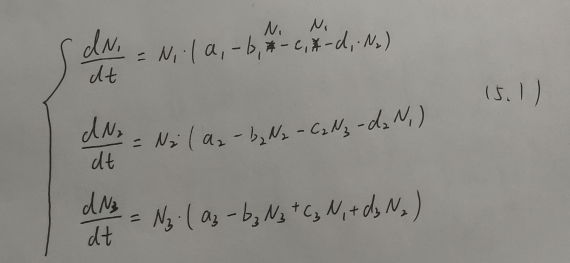 dN₁/dt = N₁·(a₁ - b₁N₁ - c₁N₁ - d₁·N₂)
(5.1)
dN₂/dt = N₂·(a₂ - b₂N₂ - c₂N₃ - d₂N₁)
dN₃/dt = N₃·(a₃ - b₃N₃ + c₃N₁ + d₃N₂)